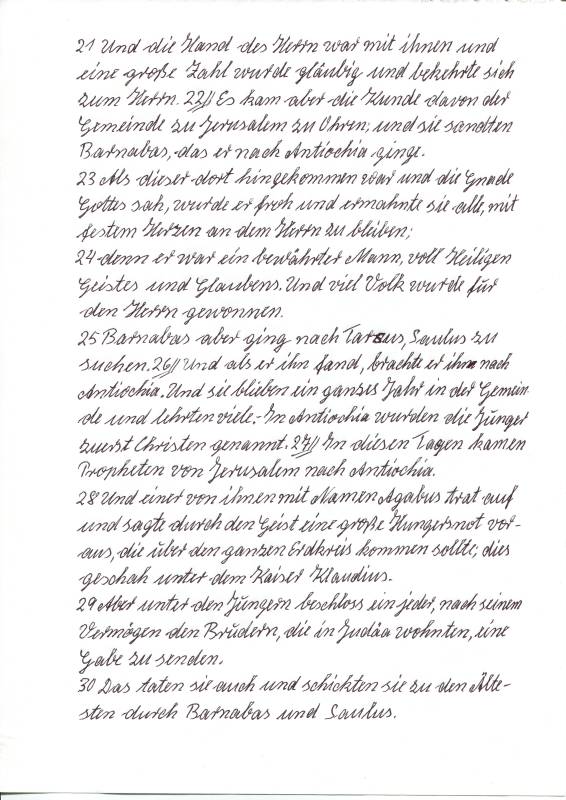 21 Und die Hand des Herrn war mit ihnen und
eine große Zahl wurde gläubig und bekehrte sich
zum Herrn. 22// Es kam aber die Kunde davon der
Gemeinde zu Jerusalem zu Ohren; und sie sandten
Barnabas, das er nach Antiochia ginge.
23 Als dieser dort hingekommen war und die Gnade
Gottes sah, wurde er froh und ermahnte sie alle, mit
festem Herzen an dem Herrn zu bleiben;
24 denn er war ein bewährter Mann, voll Heiligen
Geistes und Glaubens. Und viel Volk wurde für
den Herrn gewonnen.
25 Barnabas aber ging nach Tarsus, Saulus zu
suchen. 26// Und als er ihn fand, brachte er ihn nach
Antiochia. Und sie blieben ein ganzes Jahr in der Gemein
de und lehrten viele.- In Antiochia wurden die Jünger
zuerst Christen genannt. 27// In diesen Tagen kamen
Propheten von Jerusalem nach Antiochia.
28 Und einer von ihnen mit Namen Agabus trat auf
und sagte durch den Geist eine große Hungersnot vor-
aus, die über den ganzen Erdkreis kommen sollte; dies
geschah unter dem Kaiser Klaudius.
29 Aber unter den Jüngern beschloss ein jeder, nach seinem
Vermögen den Brüdern, die in Judäa wohnten, eine
Gabe zu senden.
30 Das taten sie auch und schickten sie zu den Älte-
sten durch Barnabas und Saulus.